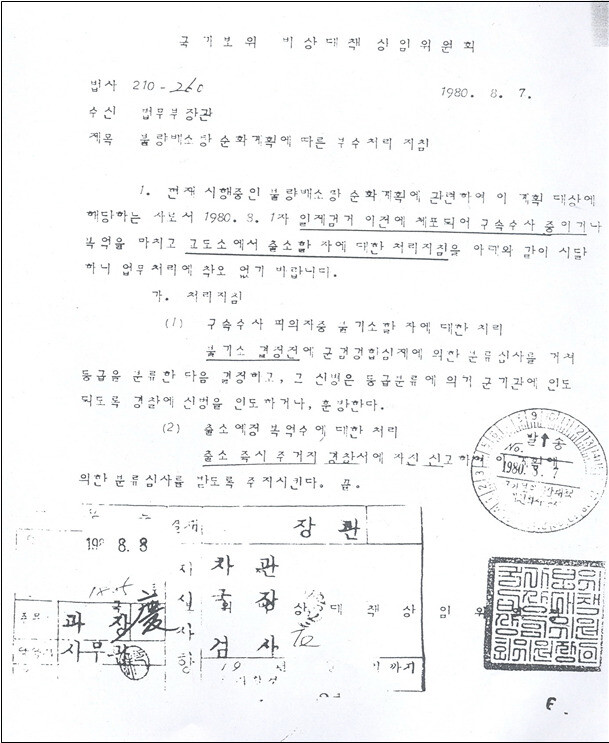 국가보위 비상대책 상임위원회
법사 210-260 1980. 8. 7.
수신 법무부장관
제목 불량배소탕 순화계획에 따른 부수처리 지침
1. 현재 시행중인 불량배소탕 순화계획에 관련하여 이 계획 대상에
해당하는 자로서 1980. 8. 1자 일제검거 이전에 체포되어 구속수사 중이거나
복역을 마치고 교도소에서 출소할 자에 대한 처리지침을 아래와 같이 시달
하니 업무처리에 착오 없기 바랍니다.
가. 처리지침
(1) 구속수사 피의자중 불기소할 자에 대한 처리
불기소 결정전에 군검경합심제에 의한 분류심사를 거쳐
등급을 분류한 다음 결정하고, 그 신병은 등급분류에 의거 군기관에 인도
되도록 경찰에 신병을 인도하거나, 훈방한다.
(2) 출소예정 복역수에 대한 처리
출소 즉시 주거지 경찰서에 자진 신고하여 이 계획에
의한 분류심사를 받도록 주지시킨다. 끝.
발송
No.
1980. 8. 7
198 8. 8
장관
지시사항
차관
국장
검사
과장
慶
사무관
상대책상임위원
19 년 까지